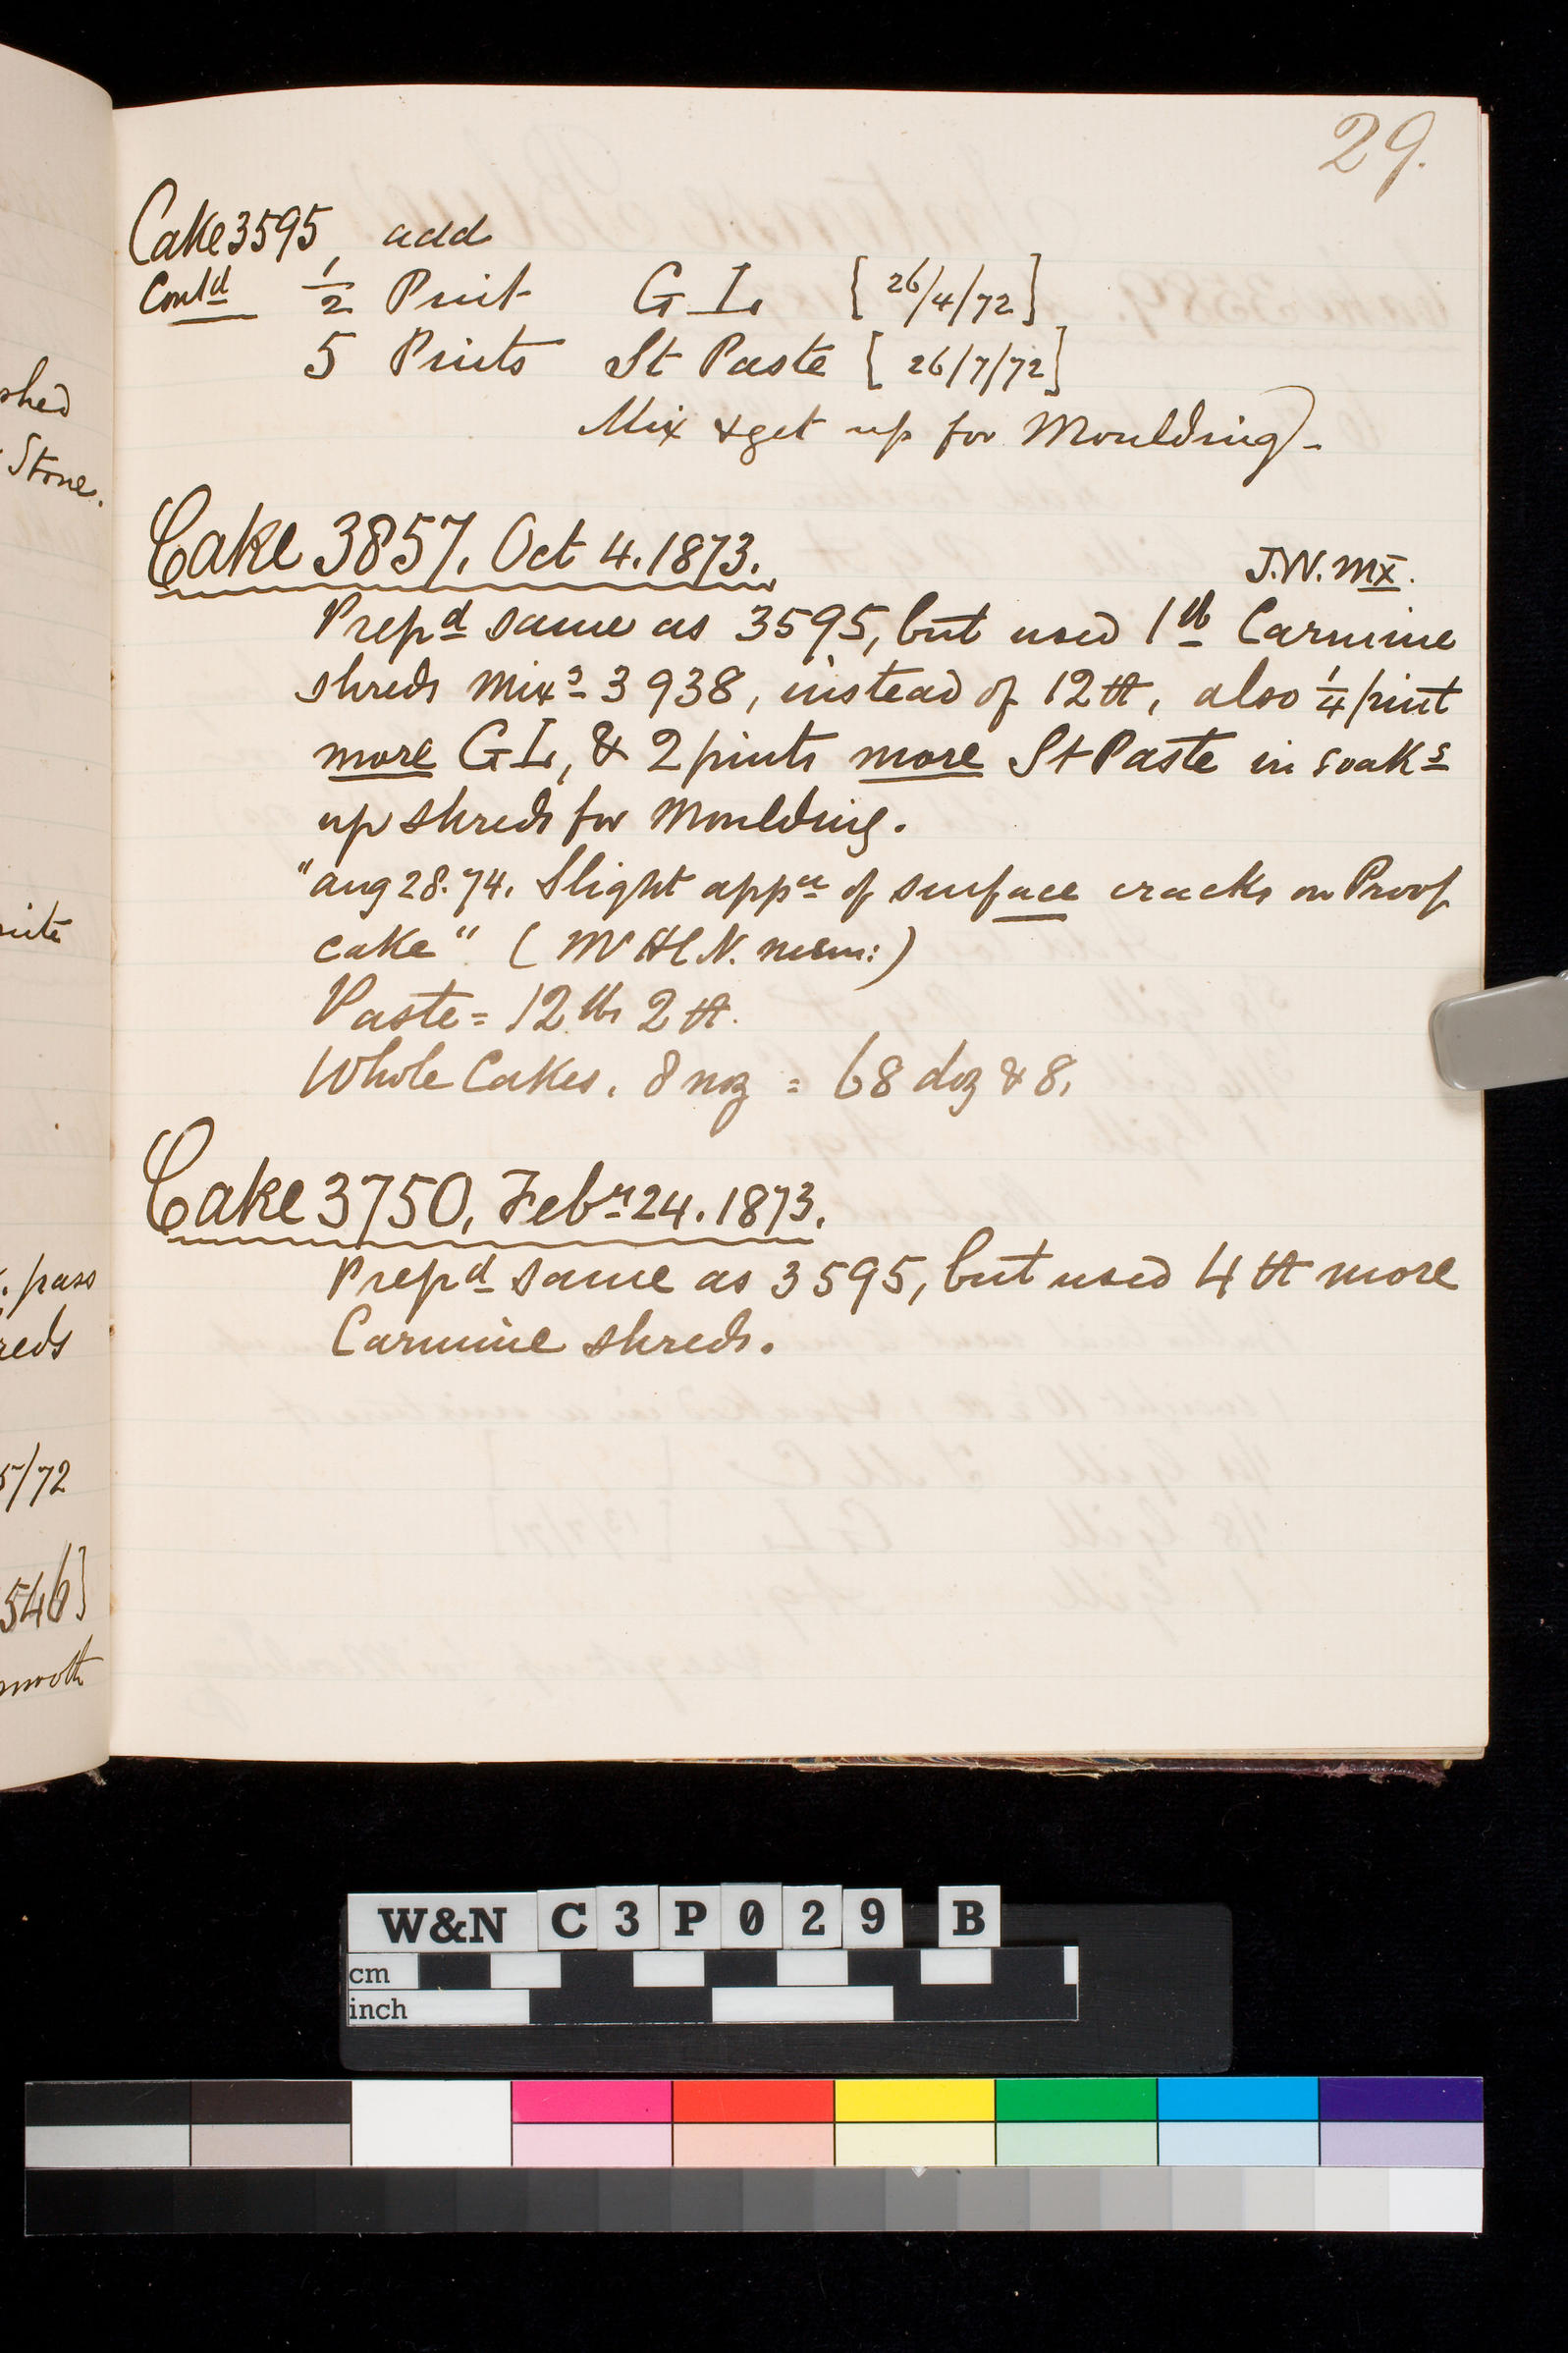 29.
Cake 3595, add
Contd 1/2 Pint G L [26/4/72]
5 Pints St Paste [26/7/72]
Mix & get up for Moulding.
Cake 3857, Oct 4. 1873.
J.W. mx.
Prepd same as 3595, but used 1 lb Carmine
shreds mixg 3938, instead of 12 ℔, also 1/4 pint
more GL, & 2 pints more St Paste in soakg
up shreds for Moulding.
"Aug 28. 74. Slight appce of surface cracks on Proof
cake" (Mr HCN. mem:)
Paste = 12 lbs 2 ℔.
Whole Cakes, 8 noz = 68 doz & 8.
Cake 3750, Febry 24. 1873.
Prepd same as 3595, but used 4 ℔ more
Carmine shreds.
shed
Stone.
pass
reds
5/72
546]
smooth
W&N C3P029 B
cm
inch